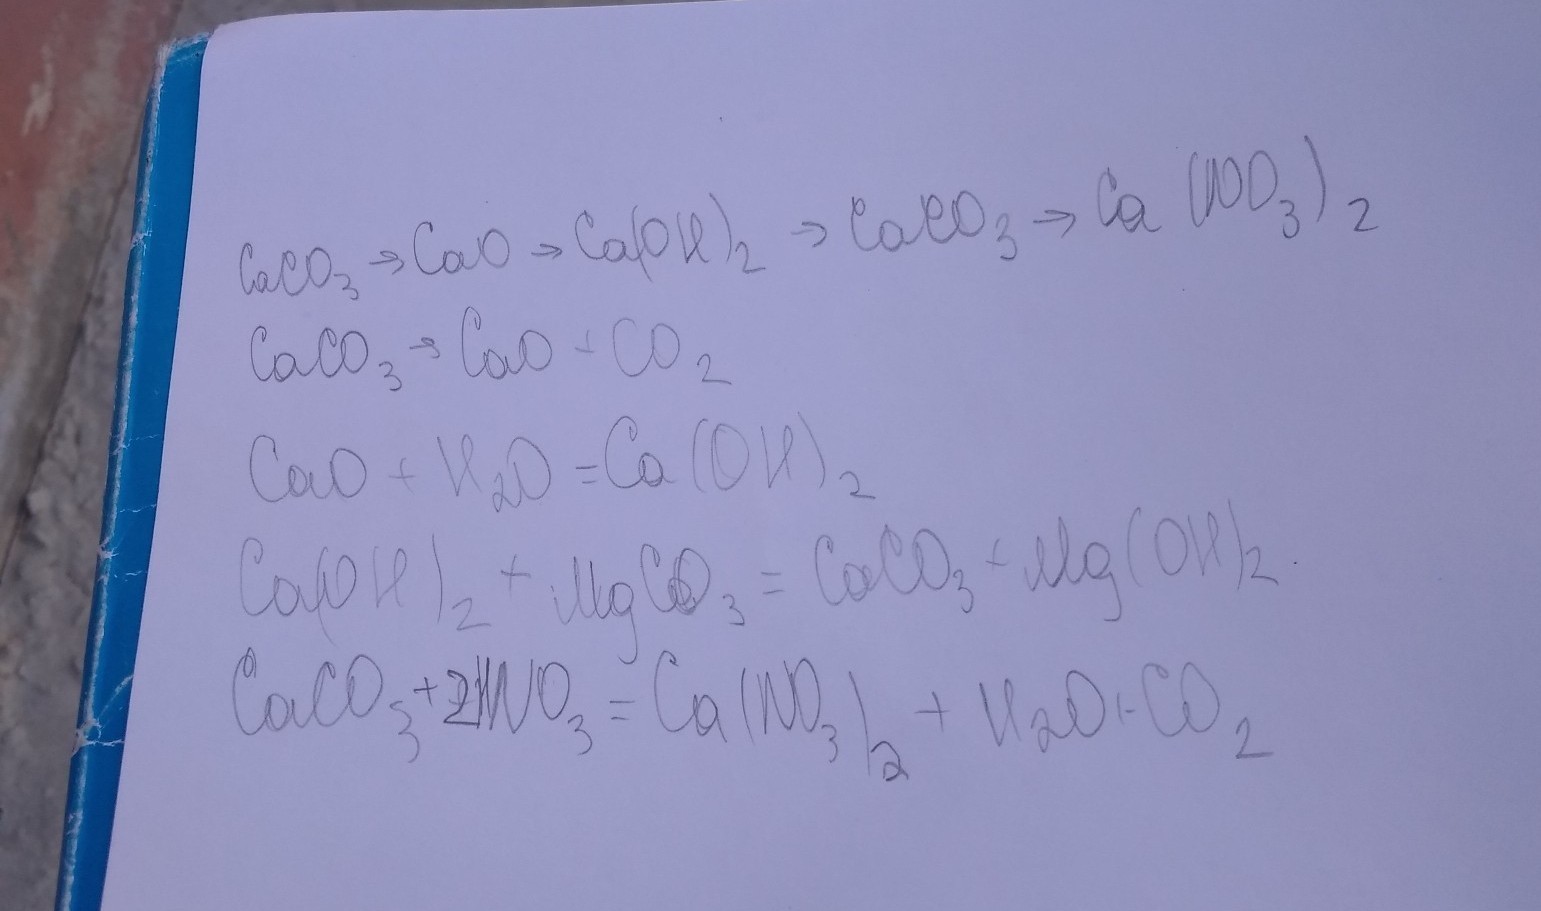 CaCO₃ → CaO → Ca(OH)₂ → CaCO₃ → Ca (NO₃)₂
CaCO₃ → CaO + CO₂
CaO + H₂O = Ca(OH)₂
Ca(OH)₂ + MgCO₃ = CaCO₃ + Mg(OH)₂.
CaCO₃ + 2HNO₃ = Ca(NO₃)₂ + H₂O + CO₂